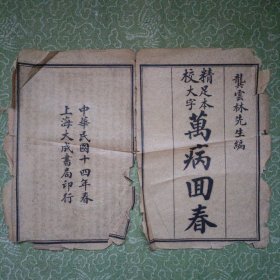 龔雲林先生編
精足本
校大字
萬病回春
中華民國十四年春
上海大成書局印行